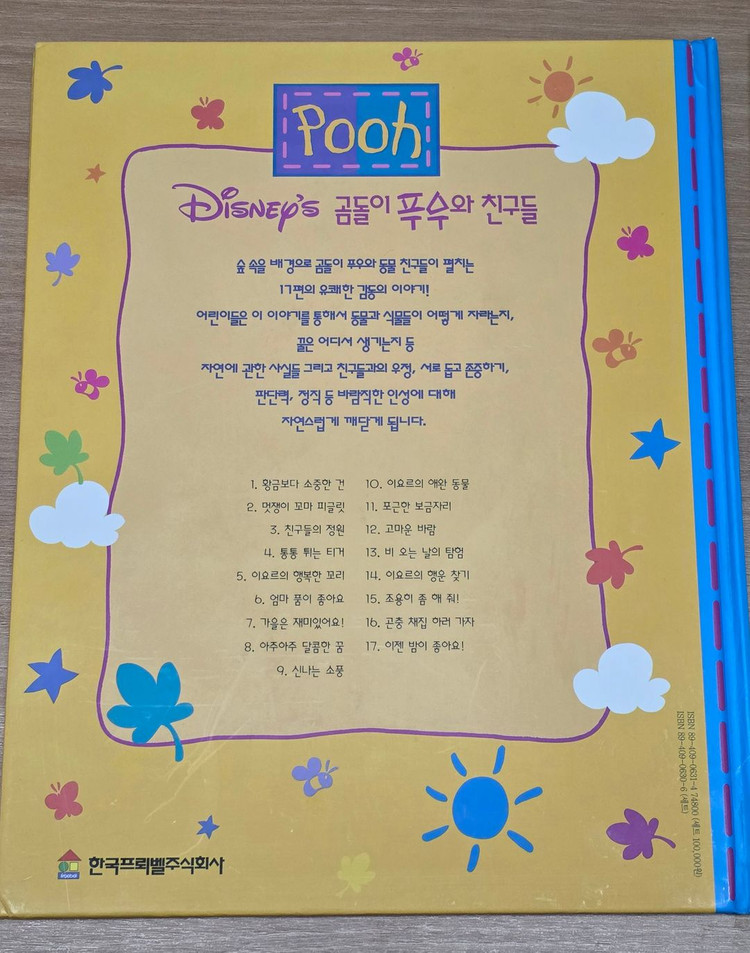 Pooh
DISNEY'S 곰돌이 푸우와 친구들
숲 속을 배경으로 곰돌이 푸우와 동물 친구들이 펼치는
17편의 유쾌한 감동의 이야기!
어린이들은 이 이야기를 통해서 동물과 식물들이 어떻게 자라는지,
꿀은 어디서 생기는지 등
자연에 관한 사실들 그리고 친구들과의 우정, 서로 돕고 존중하기,
판단력, 정직 등 바람직한 인성에 대해
자연스럽게 깨닫게 됩니다.
1. 황금보다 소중한 건
2. 멋쟁이 꼬마 피글릿
3. 친구들의 정원
4. 통통 튀는 티거
5. 이요르의 행복한 꼬리
6. 엄마 품이 좋아요
7. 가을은 재미있어요!
8. 아주아주 달콤한 꿈
9. 신나는 소풍
10. 이요르의 애완 동물
11. 포근한 보금자리
12. 고마운 바람
13. 비 오는 날의 탐험
14. 이요르의 행운 찾기
15. 조용히 좀 해 줘!
16. 곤충 채집 하러 가자
17. 이젠 밤이 좋아요!
ISBN 89-409-0631-4 74800 (세트 100,000원)
ISBN 89-409-0630-6 (세트)
한국프뢰벨주식회사